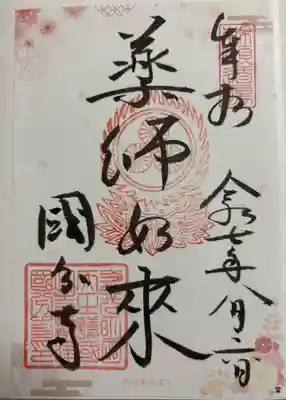 奉拝
令和七年八月二日
薬師如来
國分寺